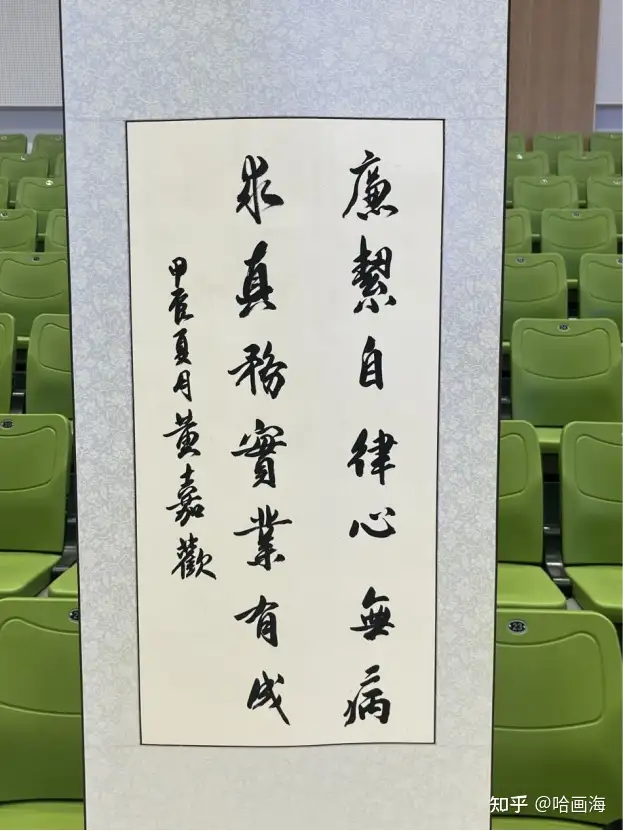 廉絜自律心無病
求真務實業有成
甲辰夏月黄嘉歡
知乎 @哈画海